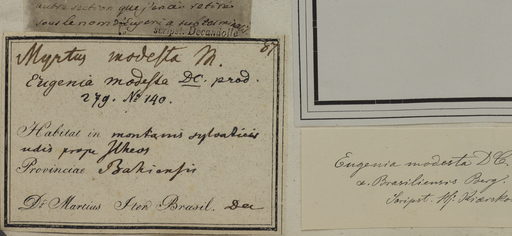 autre section que j'avais retiré
sous le nom d'Eugenia
Scripst. Decandolle
87
Myrtus modesta M.
Eugenia modesta DC. prod.
279. No 140.
Habitat in montanis sylvaticis
udis prope Ilheos
Provinciae Bahiensis
Dr Martius Iter Brasil. Dec
Eugenia modesta DC.
α. Brasiliensis Berg.
Scripst. Hj. Kiærskou